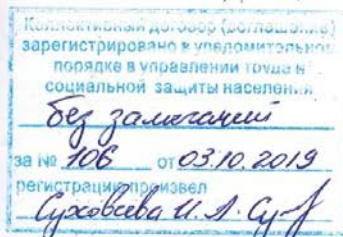 Коллективный договор (соглашение)
зарегистрировано в уведомительном
порядке в управлении труда и
социальной защиты населения
без замечаний
за № 106 от 03.10.2019
регистрацию произвел
Суховеева И. А.